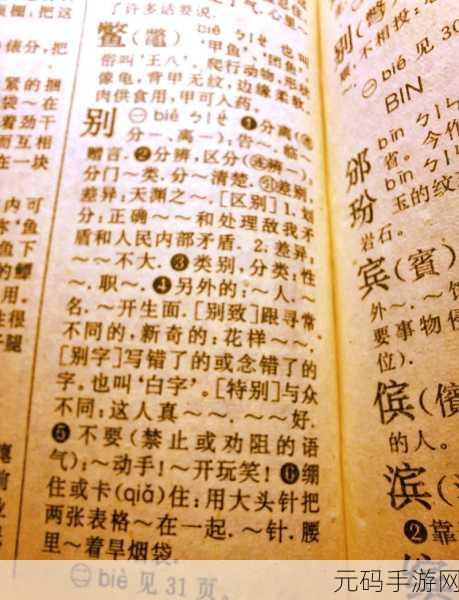 了许多话要说.
鳖(鼈) biē ㄅㄧㄝ 也叫
'甲鱼'、'团鱼',
俗叫'王八'。爬行动物,形状
像龟,背甲无纹,边缘柔软.
肉供食用,甲可入药。
别 ㊀bié ㄅㄧㄝˊ ❶分离(
分一、离一):告~.临~
赠言.❷分辨,区分(
分门~类.分~清楚.㊁差别,
差异:天渊之~.[区别]1.划
分:正确~~和处理敌我矛
盾和人民内部矛盾.2.差异:
~~不大.❸类别,分类:性
~.职~.❹另外的:~人.~
名.~开生面.[别致]跟寻常
不同的,新奇的:花样~~.
[别字]写错了的或念错了的
字。也叫'白字'。[特别]与众
不同:这人真~~.~~好.
❺不要(禁止或劝阻的语
气):~动手!~开玩笑!❻绷
住或卡(qiǎ)住:用大头针把
两张表格~在一起.~针.腰
里~着旱烟袋.
㊁biè 见31页。
俵分,把
紧的捆
袋~在
看劲干
而互相
在一块
内可
鱼下
的鳔
用。
性很
子腿
别(彆)
不相投:
㊀bié 见30
BIN
邠 bīn
省。今作
玢 bīn ㄅㄧㄣ
玉的纹
岩石。
宾(賓)
外~.~
要事物
位).
傧(儐)
的人。
滨(
❷靠
元码手游网